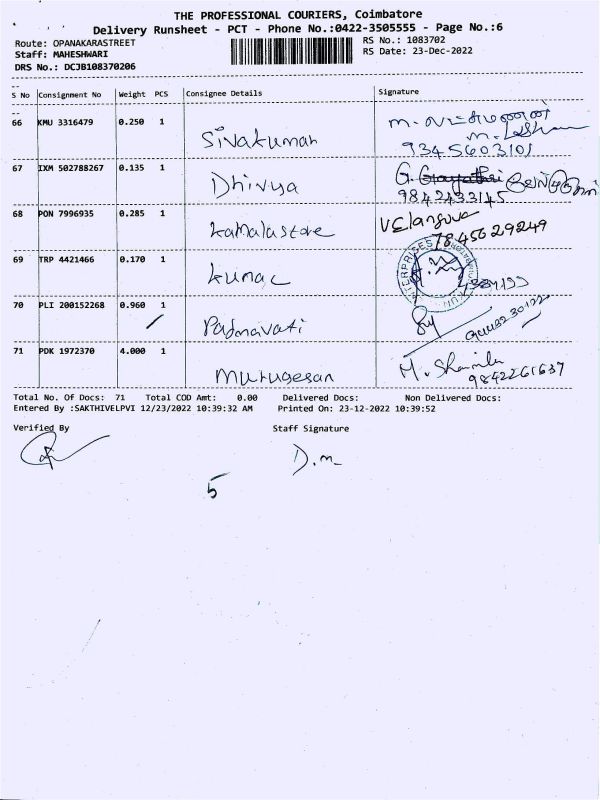 THE PROFESSIONAL COURIERS, Coimbatore
Delivery Runsheet - PCT - Phone No.:0422-3505555 - Page No.:6
Route: OPANAKARASTREET
RS No.: 1083702
Staff: MAHESHWARI
RS Date: 23-Dec-2022
DRS No.: DCJB108370206
S No Consignment No Weight PCS Consignee Details Signature
66 KMU 3316479 0.250 1 Sivakumar
9345603101
67 IXM 502788267 0.135 1 Dhivya G. Gayathri
9842433145
68 PON 7996935 0.285 1 Kamala store
7845629249
69 TRP 4421466 0.170 1 Kumar
ENTERPRISES
70 PLI 200152268 0.960 1 Padmavati
71 PDK 1972370 4.000 1 Murugesan M. Sharmila
9842261637
Total No. Of Docs: 71 Total COD Amt: 0.00 Delivered Docs: Non Delivered Docs:
Entered By :SAKTHIVELPVI 12/23/2022 10:39:32 AM Printed On: 23-12-2022 10:39:52
Verified By Staff Signature
D.m
5